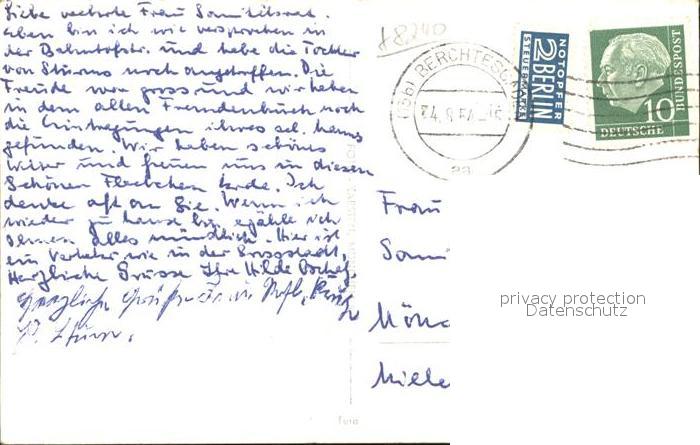 Liebe verehrte Frau Sanitätsrat.
eben bin ich wie versprochen in
der Bahnhofstr. und habe die Tochter
von Sturms noch angetroffen. Die
Freude war gross und wir haben
in dem alten Fremdenbuch noch
die Eintragungen ihres sel. Manns
gefunden. Wir haben schönes
Wetter und freuen uns in diesem
Schönen Fleckchen Erde. Ich
denke oft an Sie. Wenn ich
wieder zu Hause bin, erzähle ich
Ihnen alles mündlich. Hier ist
ein Verkehr wie in der Grossstadt,
Herzliche Grüsse Ihre Hilde
Herzliche Grüße
Sturm.
48240
BERCHTESGA
NOTOPFER
2 BERLIN
STEUERMARKE
10
DEUTSCHE
BUNDESPOST
Frau
Sani
Mönc
Mielle
privacy protection
Datenschutz